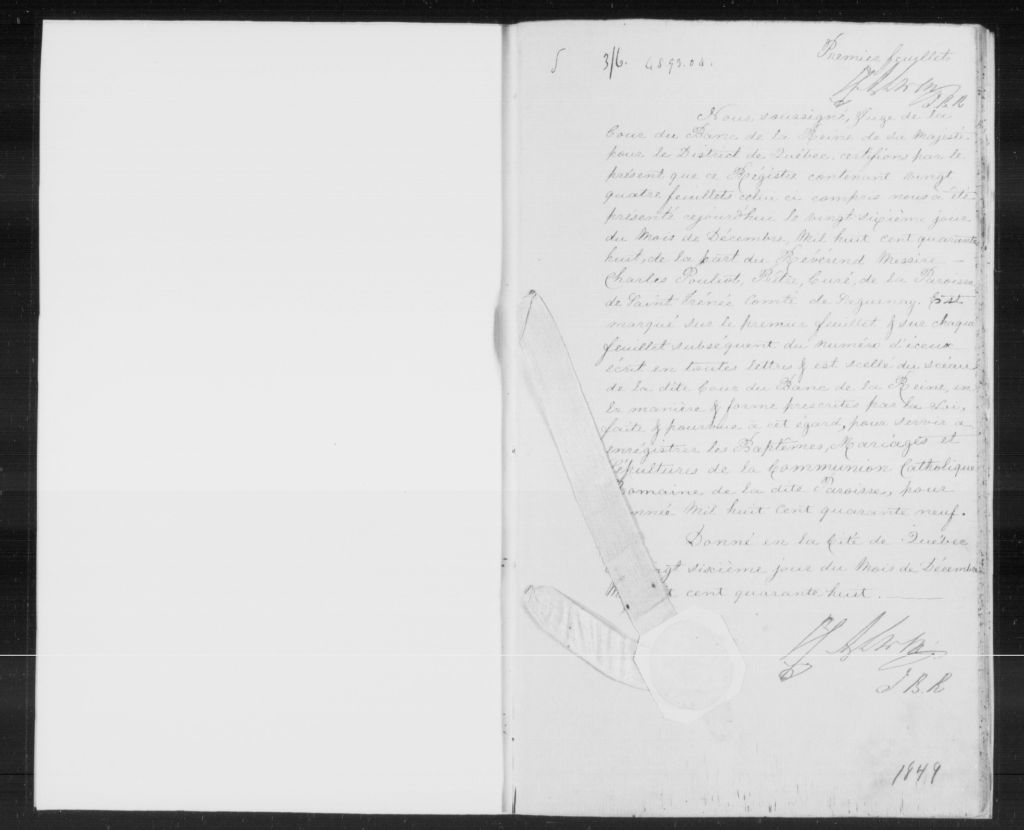 3/6. 4893.00.
Premier feuillet
J B R
Nous, soussigné, Juge de la
Cour du Banc de la Reine de sa Majesté
pour le District de Québec, certifions par le
présent que ce Régistre contenant vingt
quatre feuillets celui ci compris nous a été
présenté cejourd'hui le vingt sixième jour
du Mois de Décembre, Mil huit cent quarante
huit, de la part du Révérend Messire
Charles Pouliot, Prêtre, Curé, de la Paroisse
de Saint Irénée Comté de Saguenay. Est
marqué sur le premier feuillet & sur chaque
feuillet subséquent du numéro d'iceux
écrit en toutes lettres & est scellé du sceau
de la dite Cour du Banc de la Reine, en
la manière & forme prescrites par la Loi,
faite & pourvue à cet égard, pour servir à
enrégistrer les Baptêmes, Mariages et
Sépultures de la Communion Catholique
Romaine de la dite Paroisse, pour
année Mil huit Cent quarante neuf.
Donné en la Cité de Québec
sixième jour du Mois de Décembre
cent quarante huit.
J. B. R
1849